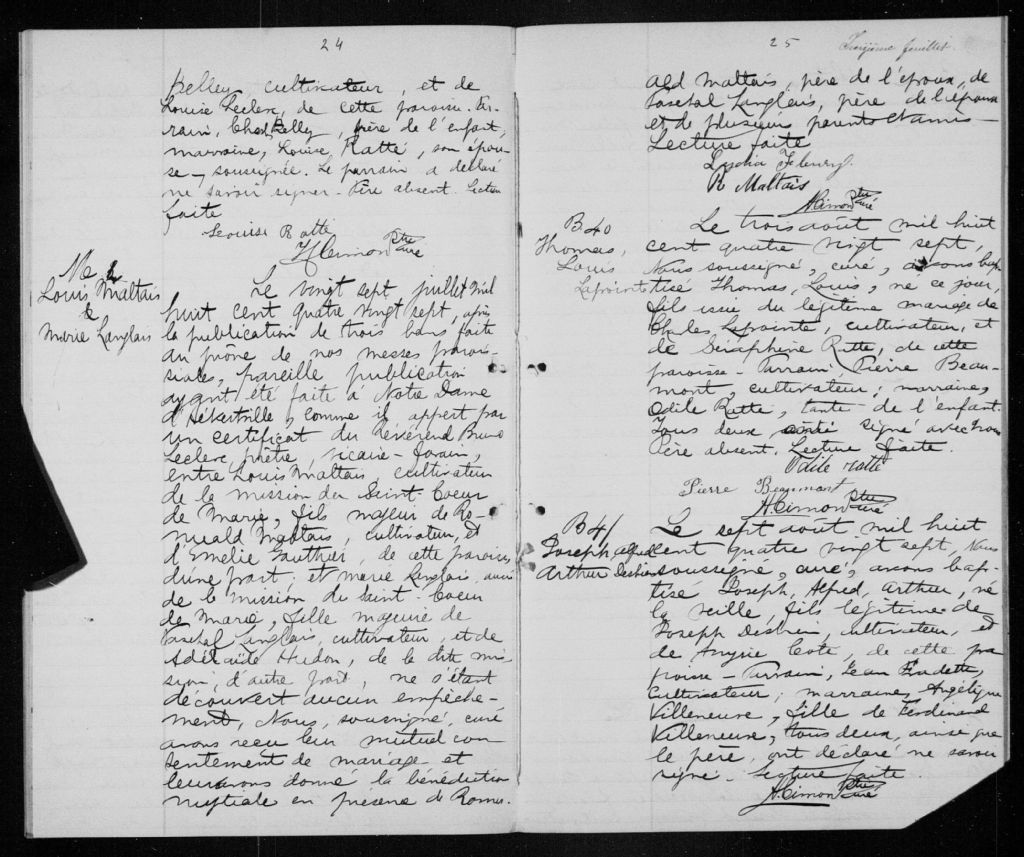 24
Kelley cultivateur, et de
Louise Leclerc, de cette paroisse. Par-
rain, Chas Kelly, père de l'enfant,
marraine, Louise Ratté, son épou-
se, soussignée. Le parrain a déclaré
ne savoir signer. Père absent. Lecture
faite
Louise Ratte
H Cimon Ptre curé
M
Louis Maltais
&
Marie Langlais
Le vingt sept juillet mil
huit cent quatre vingt sept, après
la publication de trois bans faite
au prône de nos messes parois-
siales, pareille publication
ayant été faite à Notre Dame
d'Hébertville, comme il appert par
un certificat du Révérend Bruno
Leclerc prêtre, vicaire-forain,
entre Louis Maltais cultivateur
de la mission du Saint-Coeur
de Marie, fils majeur de Ro-
muald Maltais, cultivateur, et
d'Emélie Gauthier, de cette paroisse,
d'une part; et Marie Langlais, aussi
de la mission du Saint-Coeur
de Marie, fille majeure de
Paschal Langlais, cultivateur, et de
Adélaïde Hudon, de la dite mis-
sion, d'autre part, ne s'étant
découvert aucun empêche-
ment, Nous, soussigné, curé
avons reçu leur mutuel con
sentement de mariage et
leur avons donné la bénédiction
nuptiale en présence de Romu-
25
feuillet
ald Maltais, père de l'époux, de
Paschal Langlais, père de l'épouse
et de plusieurs parents et amis -
Lecture faite
Lydia Fleury
R Maltais
H Cimon Ptre curé
B 40
Thomas,
Louis
Lapointe
Le trois août mil huit
cent quatre vingt sept,
Nous soussigné, curé, avons bap-
tisé Thomas, Louis, né ce jour,
fils issu du légitime mariage de
Charles Lapointe, cultivateur, et
de Séraphine Ratte, de cette
paroisse - Parrain Pierre Beau-
mont, cultivateur; marraine,
Odile Ratte, tante de l'enfant.
Tous deux ont signé avec nous
Père absent. Lecture faite.
Odile ratté
Pierre Beaumont
H Cimon Ptre curé
B 41
Joseph, alfred
Arthur
Le sept août mil huit
cent quatre vingt sept, Nous
soussigné, curé, avons bap-
tisé Joseph, Alfred, Arthur, né
la veille, fils légitime de
Joseph cultivateur, et
de Coté, de cette pa
roisse - Parrain, Jean
cultivateur; marraine, Angélique
Villeneuve, fille de Ferdinand
Villeneuve, tous deux, ainsi que
le père, ont déclaré ne savoir
signer - Lecture faite
H Cimon Ptre curé